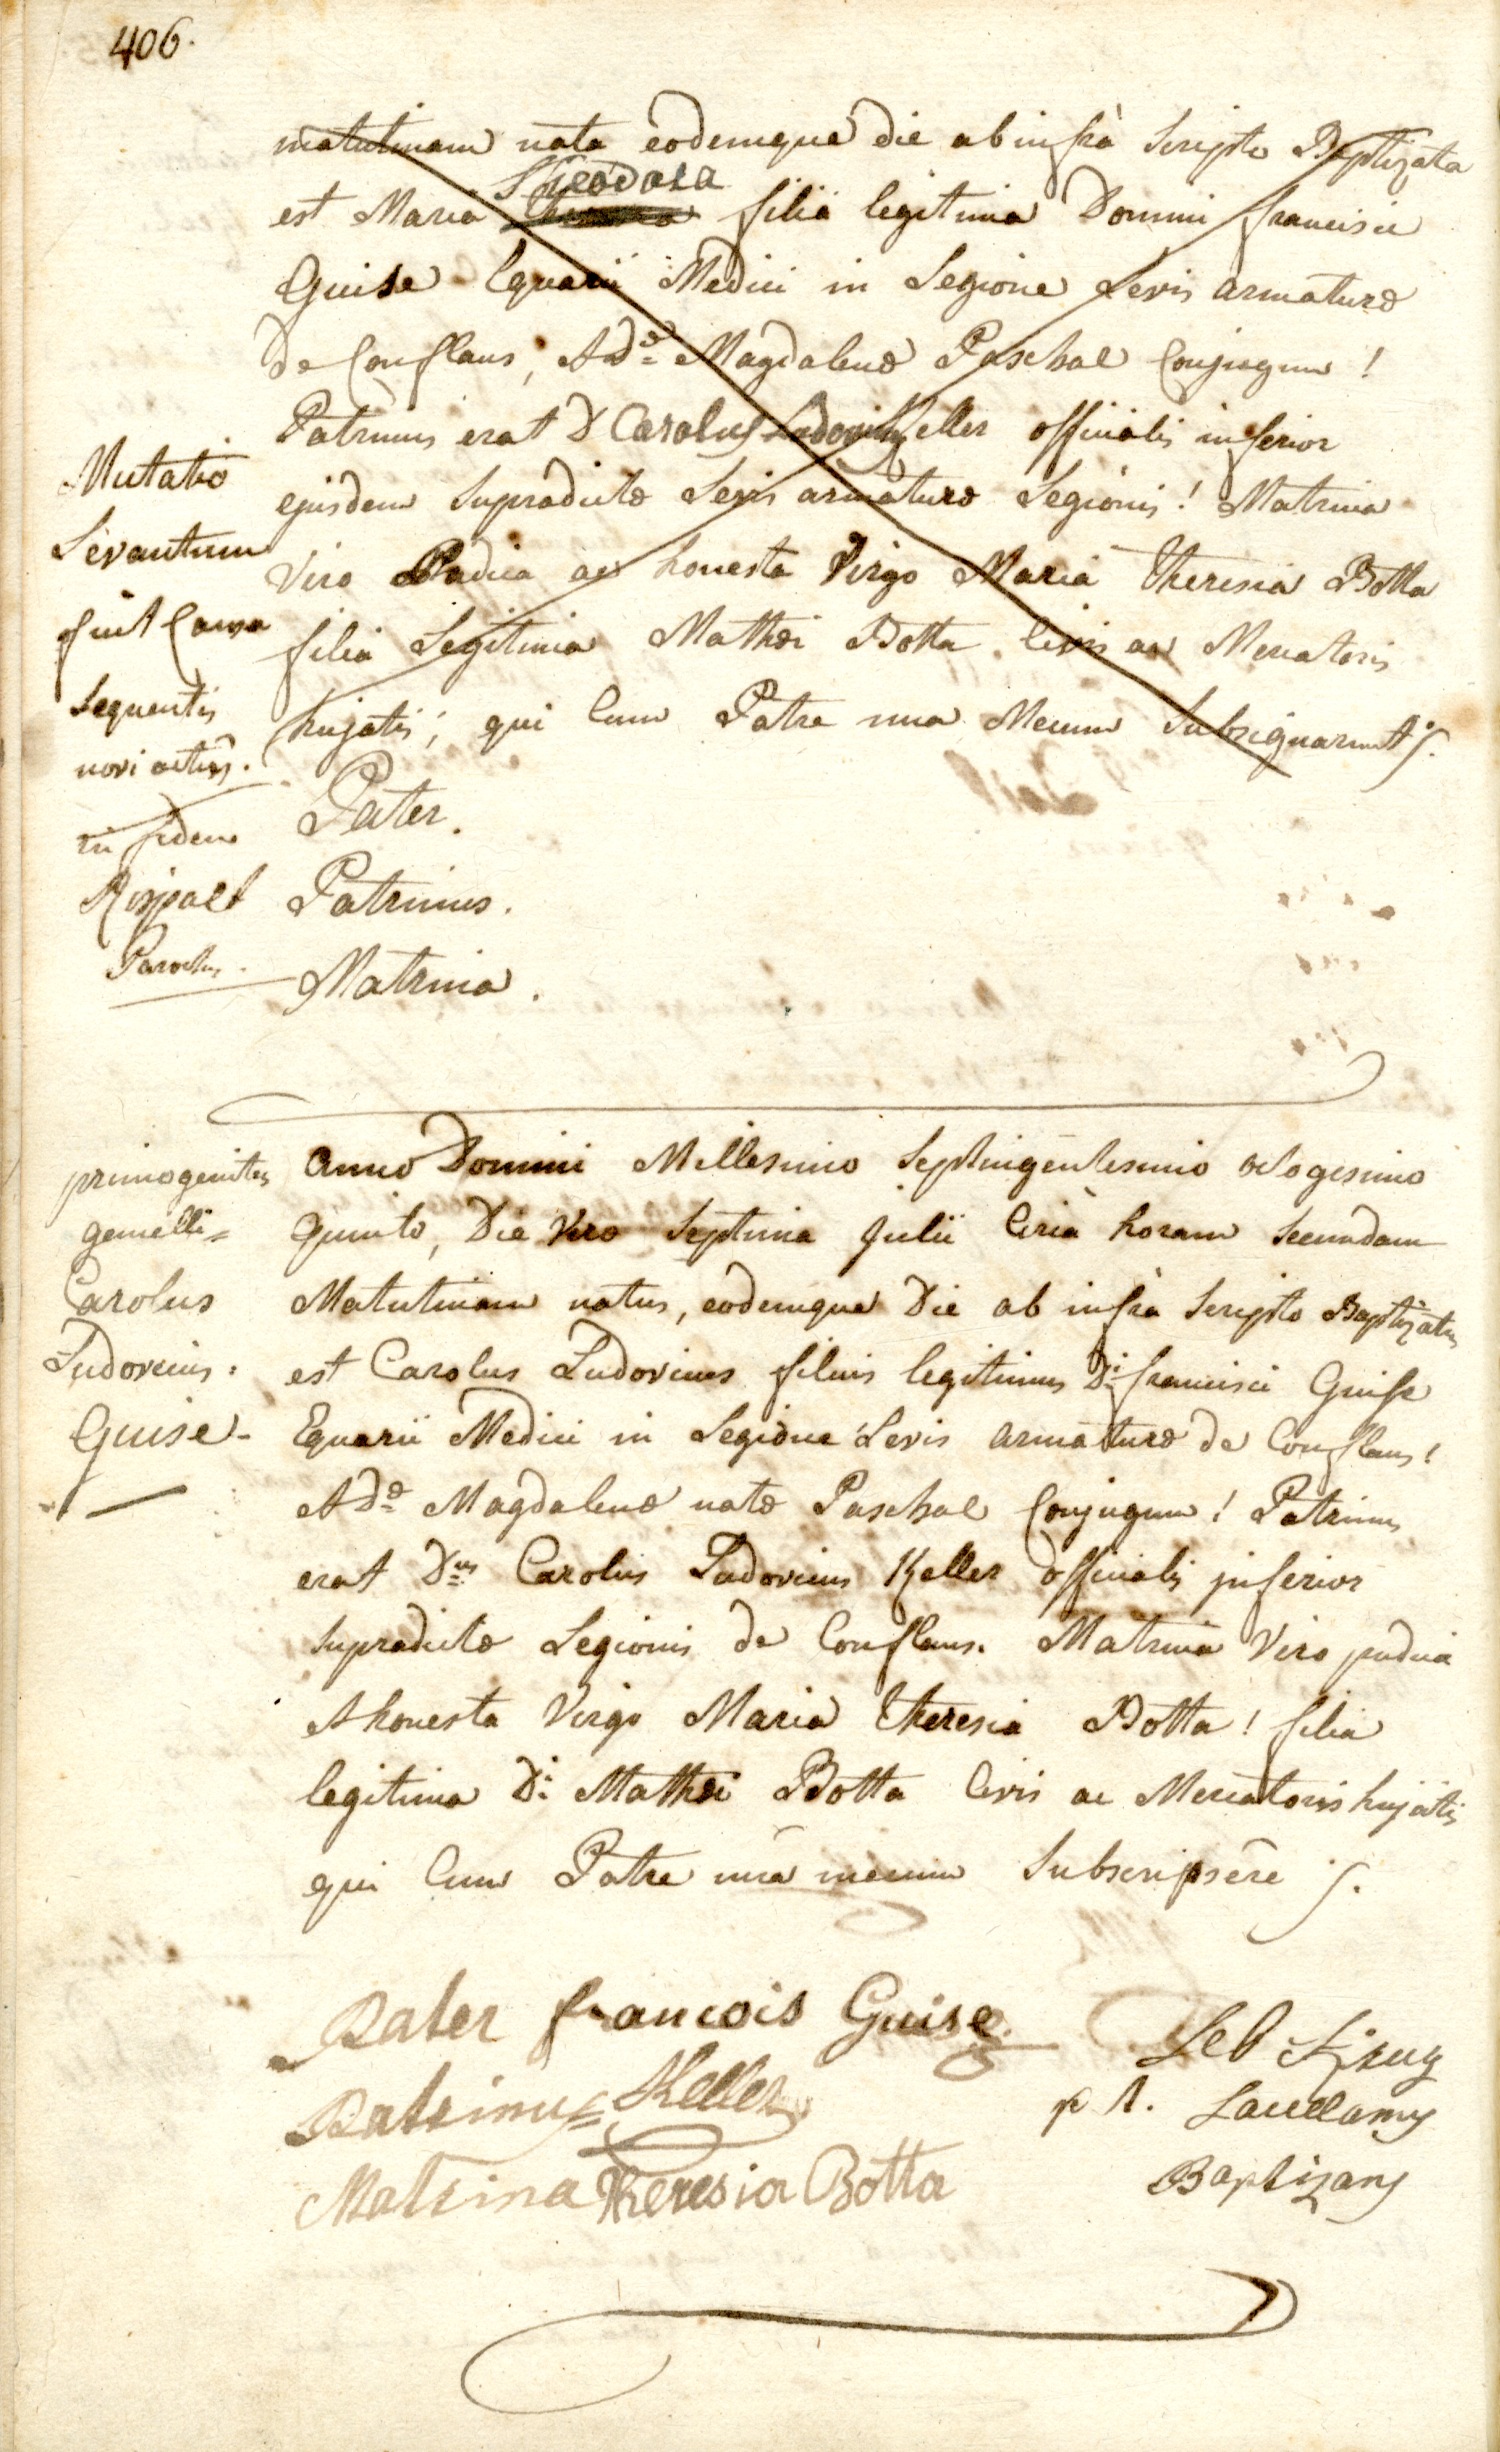 406.
matutinam nata eodemque die ab infrà Scripto Baptizata
est Maria Theodora filia legitima Domini francisci
Guise Equarii Medici in Legione Levis armaturæ
de Conflans, & Dæ Magdalenæ Paschal Conjugum !
Patrinus erat D Carolus Ludovicus Keller officialis inferior
ejusdem Supradictæ Levis armaturæ Legionis ! Matrina
Vero Pudica ac honesta Virgo Maria Theresia Botta
filia Legitima Mathæi Botta Civis ac Mercatoris
hujatis, qui Cum Patre una Mecum Subsignarunt
Pater.
Patrinus.
Matrina.
Mutatio
Levantium
fuit Causa
Sequentis
novi actus.
in fidem
Parochus.
primogenitus
gemelli=
Carolus
Ludovicus:
Guise-
Anno Domini Millesimo Septingentesimo octogesimo
Quinto, Die Vero Septima Julii Circà horam Secundam
Matutinam natus, eodemque Die ab infrà Scripto Baptizatus
est Carolus Ludovicus filius legitimus Di francisci Guise
Equarii Medici in Legione Levis armaturæ de Conflans !
& Dæ Magdalenæ natæ Paschal Conjugum ! Patrinus
erat Dnus Carolus Ludovicus Keller officialis inferior
Supradictæ Legionis de Conflans. Matrina Vero pudica
& honesta Virgo Maria Theresia Botta ! filia
legitima Di Mathæi Botta Civis ac Mercatoris hujatis
qui Cum Patre unà mecum Subscripsêre
Pater francois Guise
Patrinus Keller
Matrina Theresia Botta
p t.
Baptizans